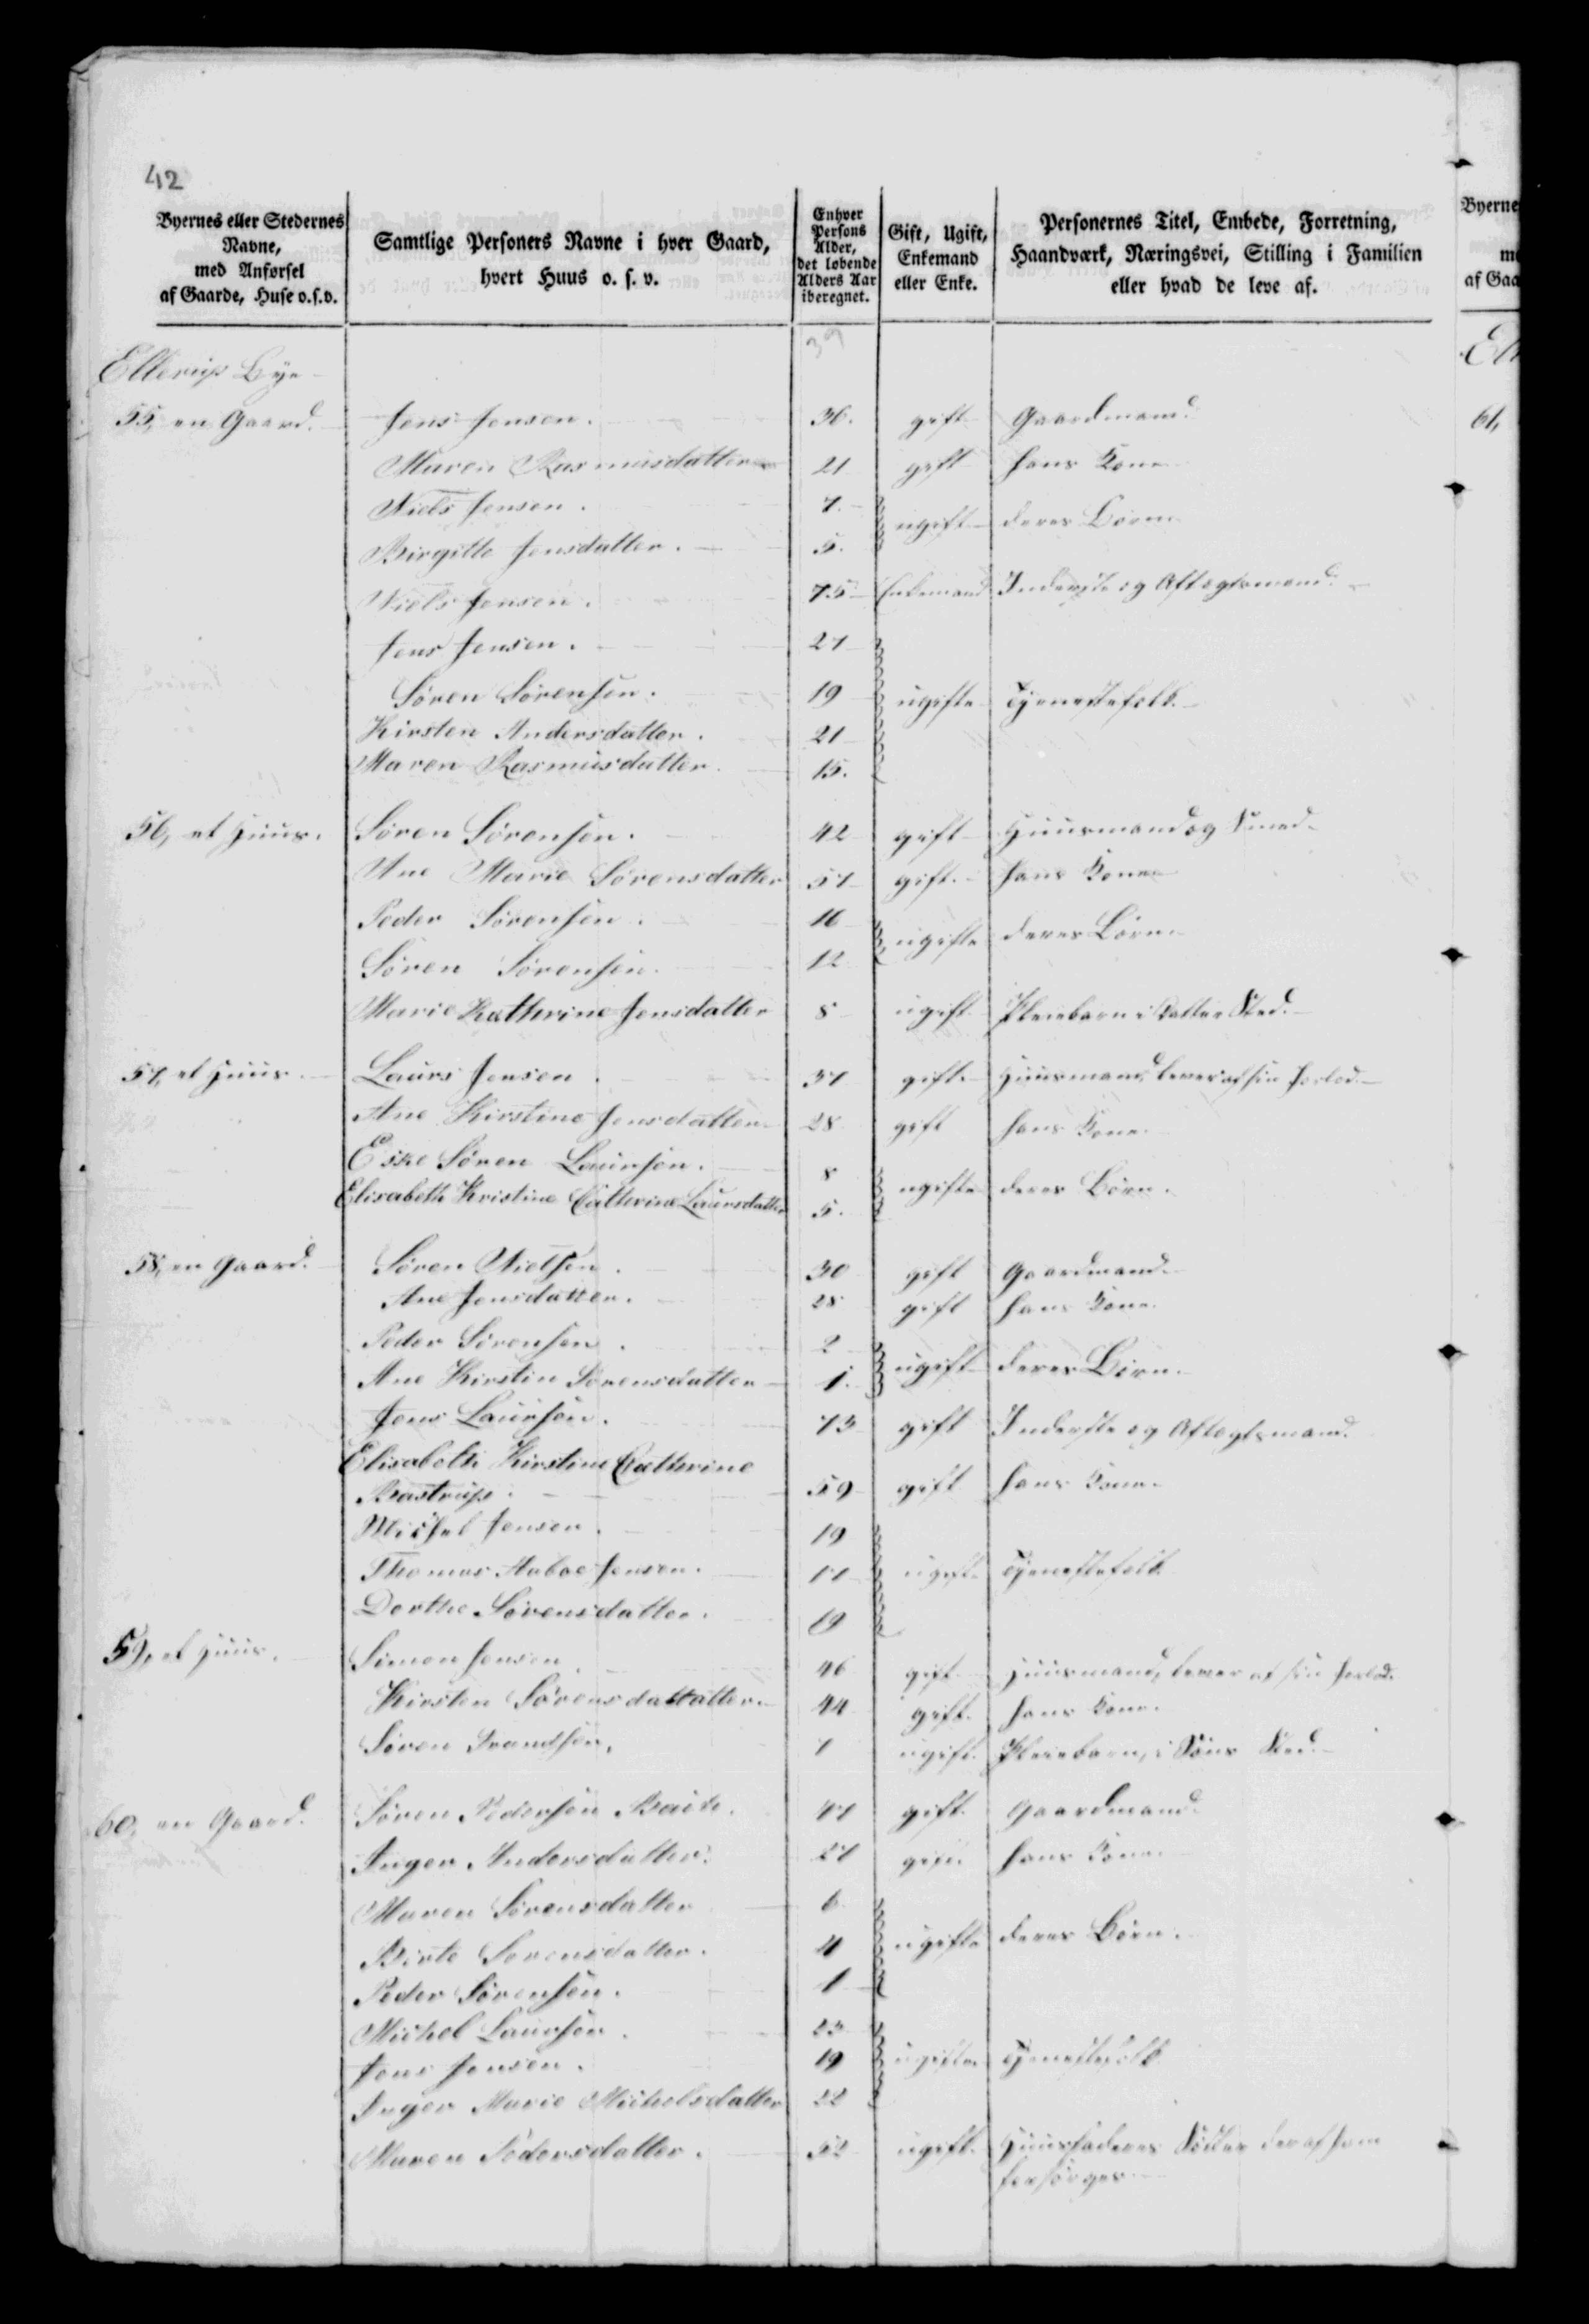 42
Byernes eller Stedernes
Navne,
med Anførsel
af Gaarde, Huse o.s.v.
Samtlige Personers Navne i hver Gaard,
hvert Huus o. s. v.
Enhver
Persons
Alder,
det løbende
Alders Aar
iberegnet.
Gift, Ugift,
Enkemand
eller Enke.
Personernes Titel, Embede, Forretning,
Haandværk, Næringsvei, Stilling i Familien
eller hvad de leve af.
39
Ellerup Bye
55, en Gaard. Jens Jensen. 36. gift Gaardmand
Maren Rasmusdatter 21 gift hans Kone
Niels Jensen. 7. ugift deres Børn
Birgitte Jensdatter. 5.
Niels Jensen. 75 Enkemand Inderste og Aftægtsmand
Jens Jensen. 27
Søren Sørensen. 19 ugifte Tjenestefolk
Kirsten Andersdatter. 21
Maren Rasmusdatter. 15.
56, et Huus. Søren Sørensen. 42 gift Huusmand og Smed
Ane Marie Sørensdatter 57 gift hans Kone
Peder Sørensen. 16 ugifte deres Børn
Søren Sørensen. 12
Marie Kathrine Jensdatter 8 ugift Pleiebarn i Datter Sted.
57, et Huus. Laurs Jensen. 37 gift Huusmand, lever af sin Jorlod.
Ane Kirstine Jensdatter 28 gift hans Kone
Eske Søren Laursen. 8 ugifte deres Børn.
Elisabeth Kristine Catherine Laursdatter 5.
58, en Gaard. Søren Nielsen. 30 gift Gaardmand.
Ane Jensdatter. 28 gift hans Kone.
Peder Sørensen. 2 ugift deres Børn.
Ane Kirstin Sørensdatter 1.
Jens Laursen. 73 gift Inderste og Aftægtsmand.
Elisabeth Kirstine Catherine
Bastrup. 59 gift hans Kone.
Michel Jensen. 19
Thomas Aaboe Jensen. 17 ugift Tjenestefolk
Dorthe Sørensdatter. 19
59, et Huus. Simon Jensen 46 gift Huusmand, lever af sin Jorlod.
Kirsten Sørensdattatter. 44 gift. hans Kone.
Søren Frandsen, 1 ugift. Pleiebarn, i Søns Sted.
60, en Gaard. Søren Pedersen 47 gift. Gaardmand
Inger Andersdatter. 27 gift. hans Kone.
Maren Sørensdatter 6
Birte Sørensdatter. 4 ugifte deres Børn.
Peder Sørensen. 1
Michel Laursen. 23
Jens Jensen. 19 ugifte Tjenestefolk
Inger Marie Michelsdatter 22
Maren Pedersdatter. 52 ugift. Huusfaderes Søster der af ham
forsørges
Byerne
af Gaa
61,